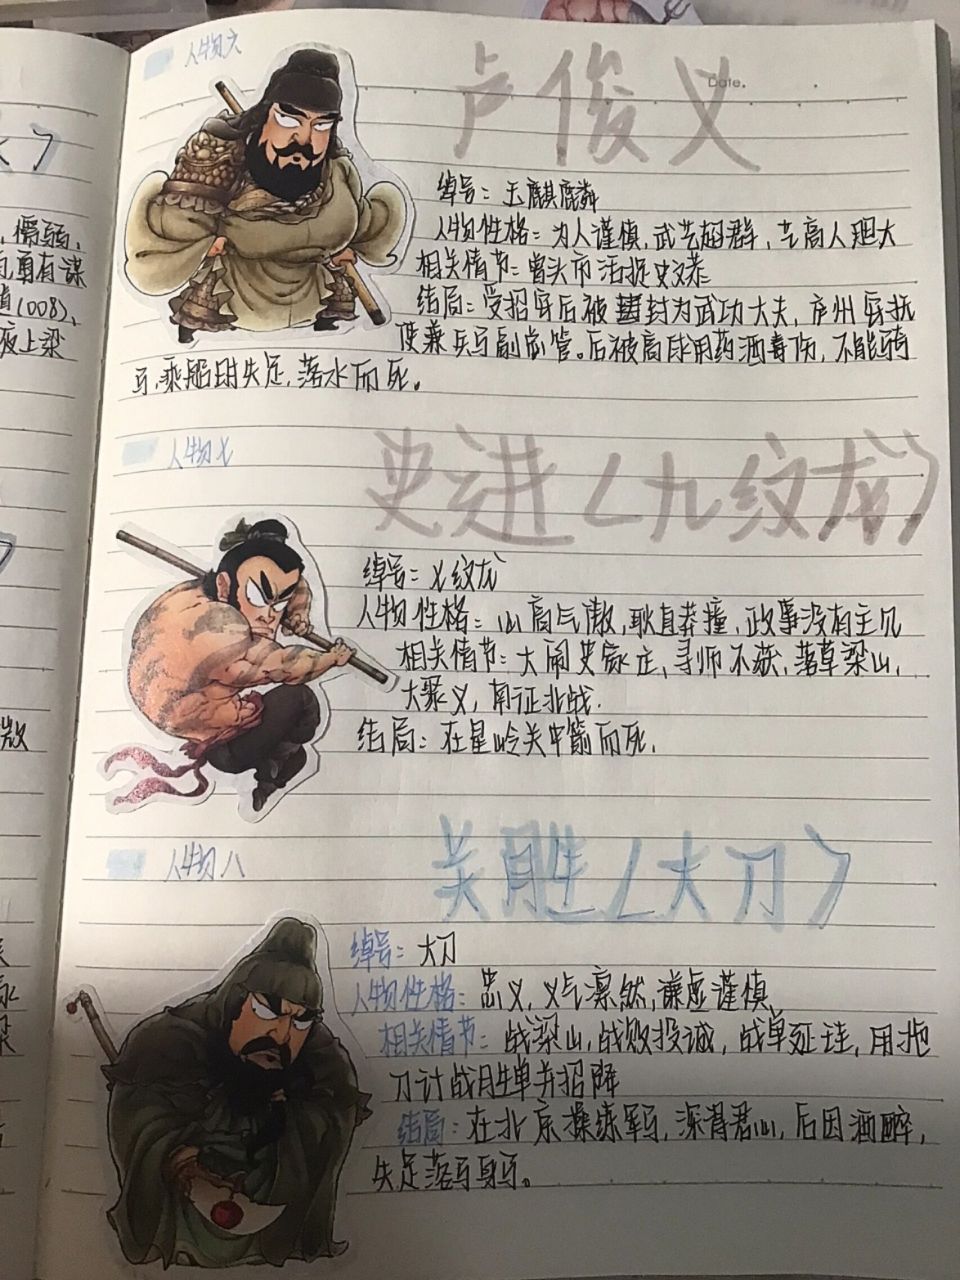 人物六
卢俊义
Date.
绰号：玉麒麟
人物性格：为人谨慎，武艺超群，艺高人胆大
相关情节：曾头市活捉史文恭
结局：受招安后被封为武功大夫，庐州安抚
使兼兵马副总管。后被高俅用药酒毒伤，不能骑
马，乘船时失足，落水而死。
人物七
史进（九纹龙）
绰号：九纹龙
人物性格：心高气傲，耿直莽撞，政事没有主见
相关情节：大闹史家庄，寻师不获，落草梁山，
大聚义，南征北战.
结局：在昱岭关中箭而死.
人物八
关胜（大刀）
绰号：大刀
人物性格：忠义，义气凛然，谦虚谨慎
相关情节：战梁山，战败投诚，战单廷珪，用拖
刀计战胜单并招降
结局：在北京操练军马，深得君心，后因酒醉，
失足落马身
懦弱，
有勇有谋
(008)、
上梁